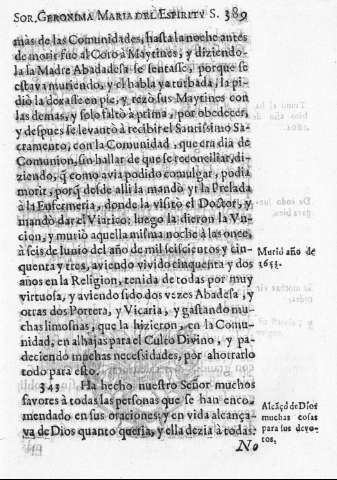 SOR. GERONIMA MARIA DEL ESPIRITV S. 389
mas de las Comunidades, hasta la noche antes
de morir fue al Coro à Maytines, y diziendo-
la la Madre Abadadesa se sentasse, porque se
estava muriendo, y el habla yà turbada, la pi-
diò la dexasse en pie, y rezò sus Maytines con
las demas, y solo faltò à prima, por obedecer,
y despues se levantò à recibir el Santissimo Sa-
cramento, con la Comunidad, que era dia de
Comunion, sin hallar de que se reconciliar, di-
ziendo, q̃ como avia podido comulgar, podia
morir, porq̃ desde alli la mandò yr la Prelada
à la Enfermeria, donde la visitò el Doctor, y
mandò dar el Viatico: luego la dieron la Vn-
cion, y muriò aquella misma noche à las onçe,
à seis de Iunio del año de mil seiscientos y cin-
quenta y tres, aviendo vivido cinquenta y dos
años en la Religion, tenida de todas por muy
virtuosa, y aviendo sido dos vezes Abadesa, y
otras dos Portera, y Vicaria, y gastando mu-
chas limosnas, que la hizieron, en la Comu-
nidad, en alhajas para el Culto Divino, y pa-
deciendo muchas necessidades, por ahorrarlo
todo para esto.
Muriò año de
1653.
343 Ha hecho nuestro Señor muchos
favores à todas las personas que se han enco-
mendado en sus oraciones; y en vida alcança-
va de Dios quanto queria, y ella dezia à todas:
Alcãçò de Dios
muchas cosas
para sus devo-
tos.
No